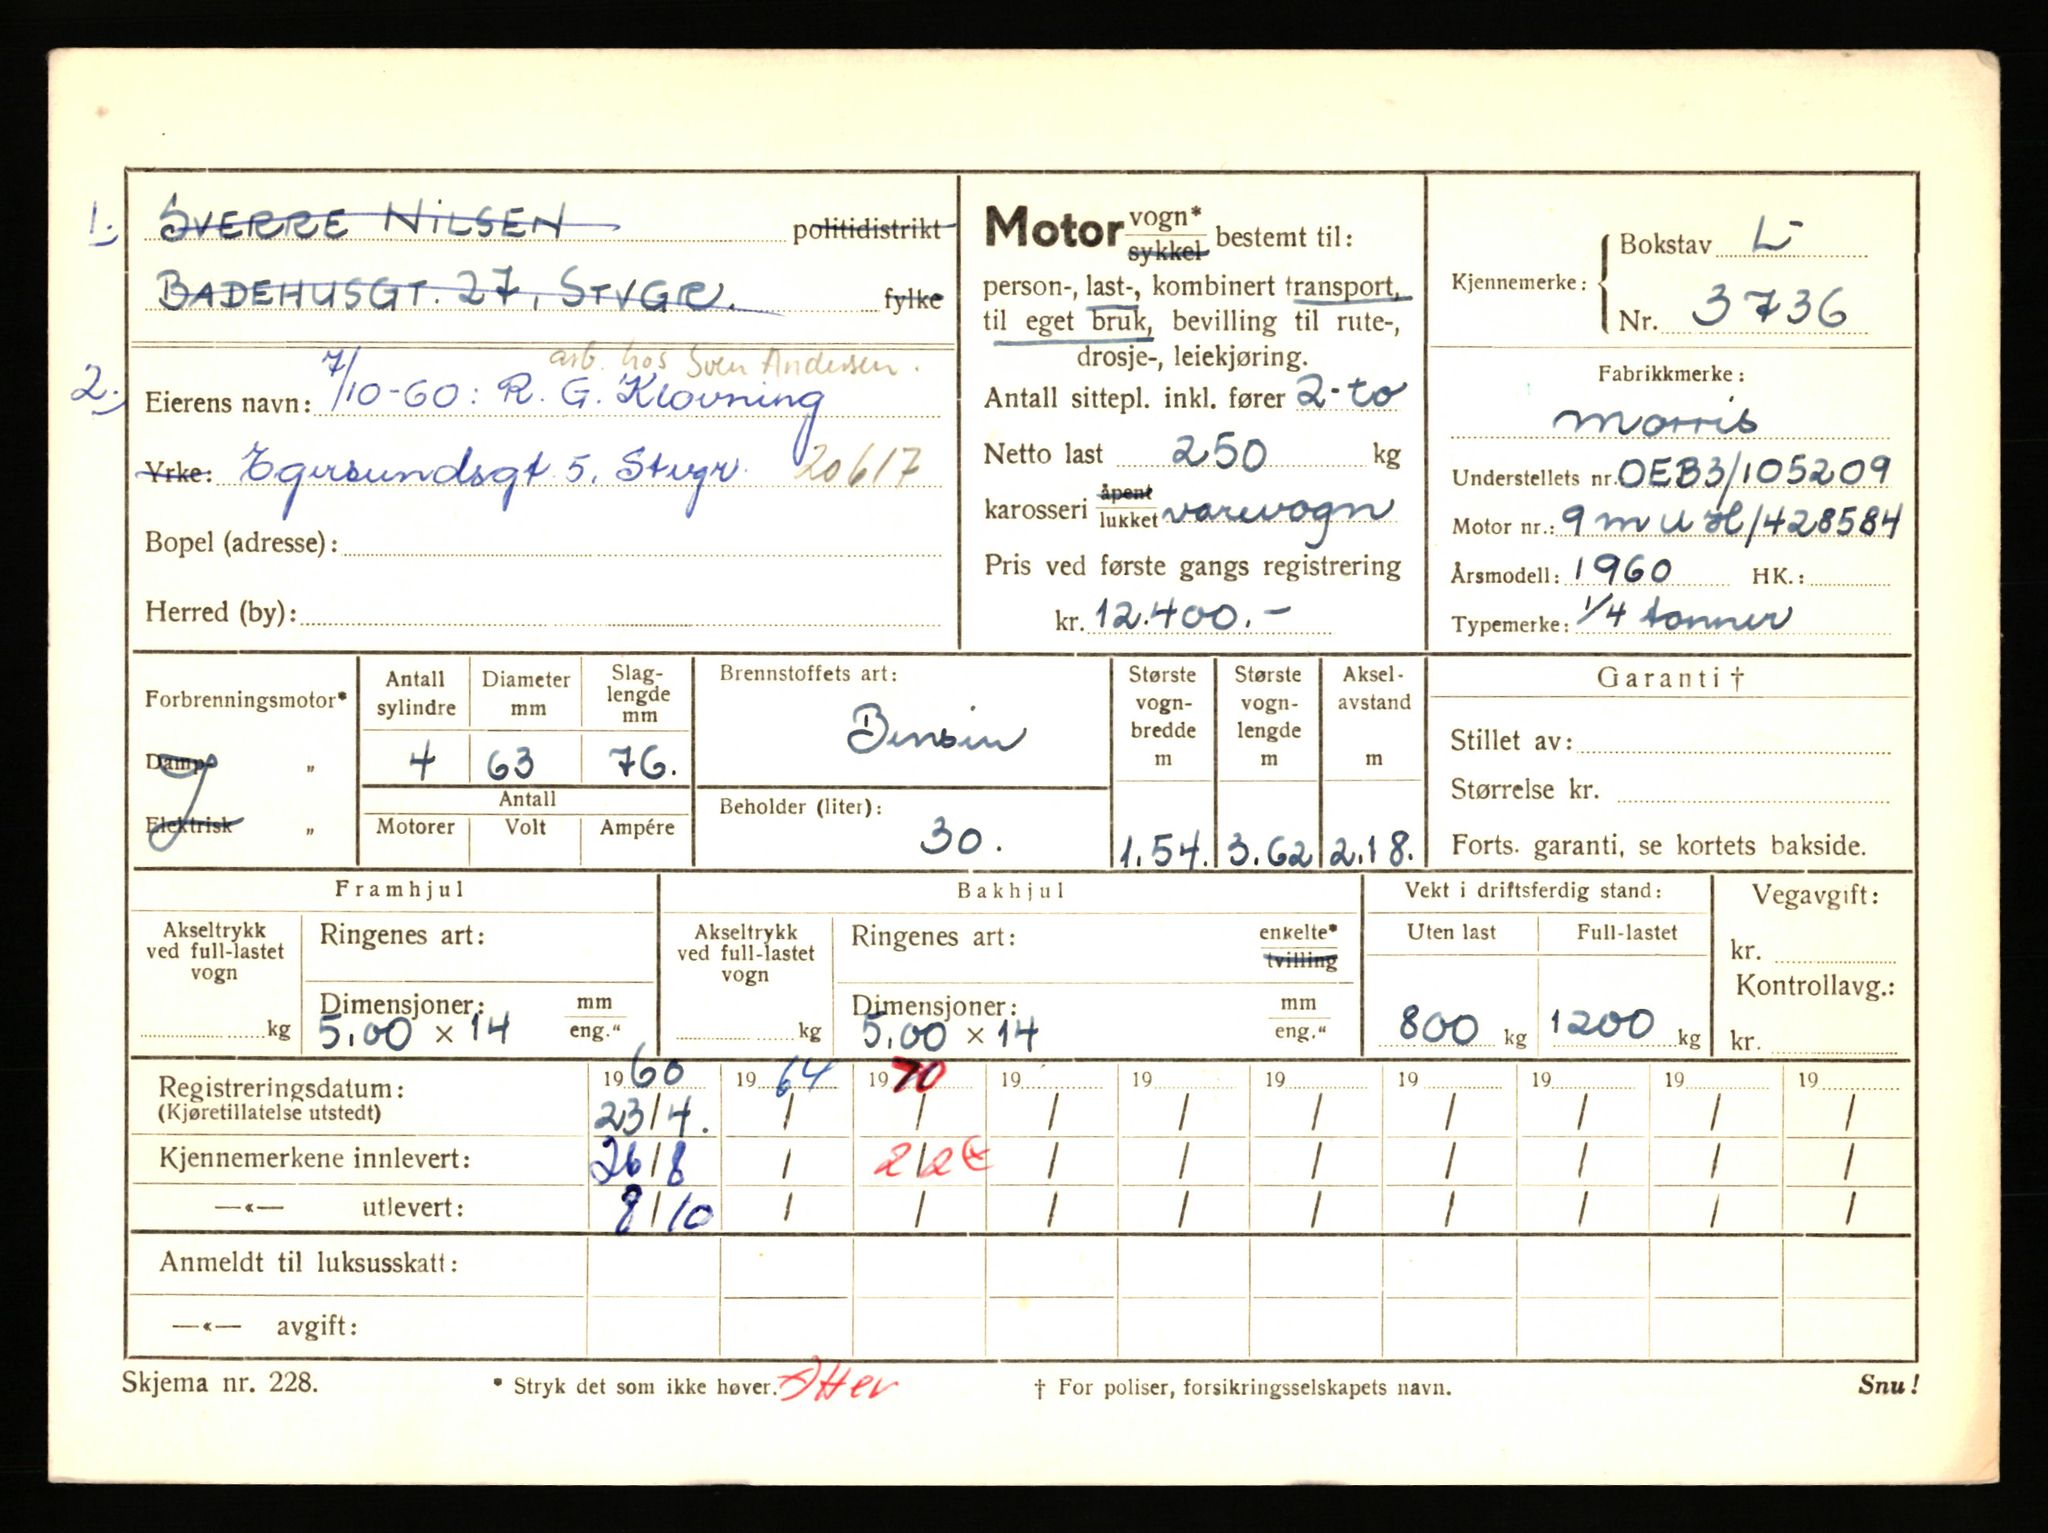 1. SVERRE NILSEN politidistrikt
BADEHUSGT. 27, STVGR. fylke
arb. hos Sven Andersen.
2. Eierens navn: 7/10-60: R. G. Klovning
Yrke: Egersundsgt. 5, Stvgr. 20617
Bopel (adresse):
Herred (by):
Motor vogn* sykkel bestemt til:
person-, last-, kombinert transport,
til eget bruk, bevilling til rute-,
drosje-, leiekjøring.
Antall sittepl. inkl. fører 2-to
Netto last 250 kg
karosseri åpent lukket varevogn
Pris ved første gangs registrering
kr. 12.400.-
Kjennemerke: Bokstav L-
Nr. 3736
Fabrikkmerke:
Morris
Understellets nr. OEB3/105209
Motor nr.: 9 m u H/428584
Årsmodell: 1960 HK.:
Typemerke: 1/4 tonner
Forbrenningsmotor*
Damp- „
Elektrisk „
Antall sylindre Diameter mm Slag-lengde mm
4 63 76.
Antall
Motorer Volt Ampére
Brennstoffets art:
Bensin
Beholder (liter):
30.
Største vogn-bredde m
1.54.
Største vogn-lengde m
3.62
Aksel-avstand m
2.18.
Garanti †
Stillet av:
Størrelse kr.
Forts. garanti, se kortets bakside.
Framhjul
Akseltrykk ved full-lastet vogn
kg
Ringenes art:
Dimensjoner: mm
5.00 × 14 eng."
Bakhjul
Akseltrykk ved full-lastet vogn
kg
Ringenes art: enkelte* tvilling
Dimensjoner: mm
5.00 × 14 eng."
Vekt i driftsferdig stand:
Uten last Full-lastet
800 kg 1200 kg
Vegavgift:
kr.
Kontrollavg.:
kr.
Registreringsdatum: 1960 1964 1970 19 19 19 19 19 19 19
(Kjøretillatelse utstedt) 23/4. / / / / / / / / /
Kjennemerkene innlevert: 26/8 / 2/2 / / / / / / /
—«— utlevert: 8/10 / / / / / / / / /
Anmeldt til luksusskatt:
—«— avgift:
Skjema nr. 228. * Stryk det som ikke høver. † For poliser, forsikringsselskapets navn. Snu!